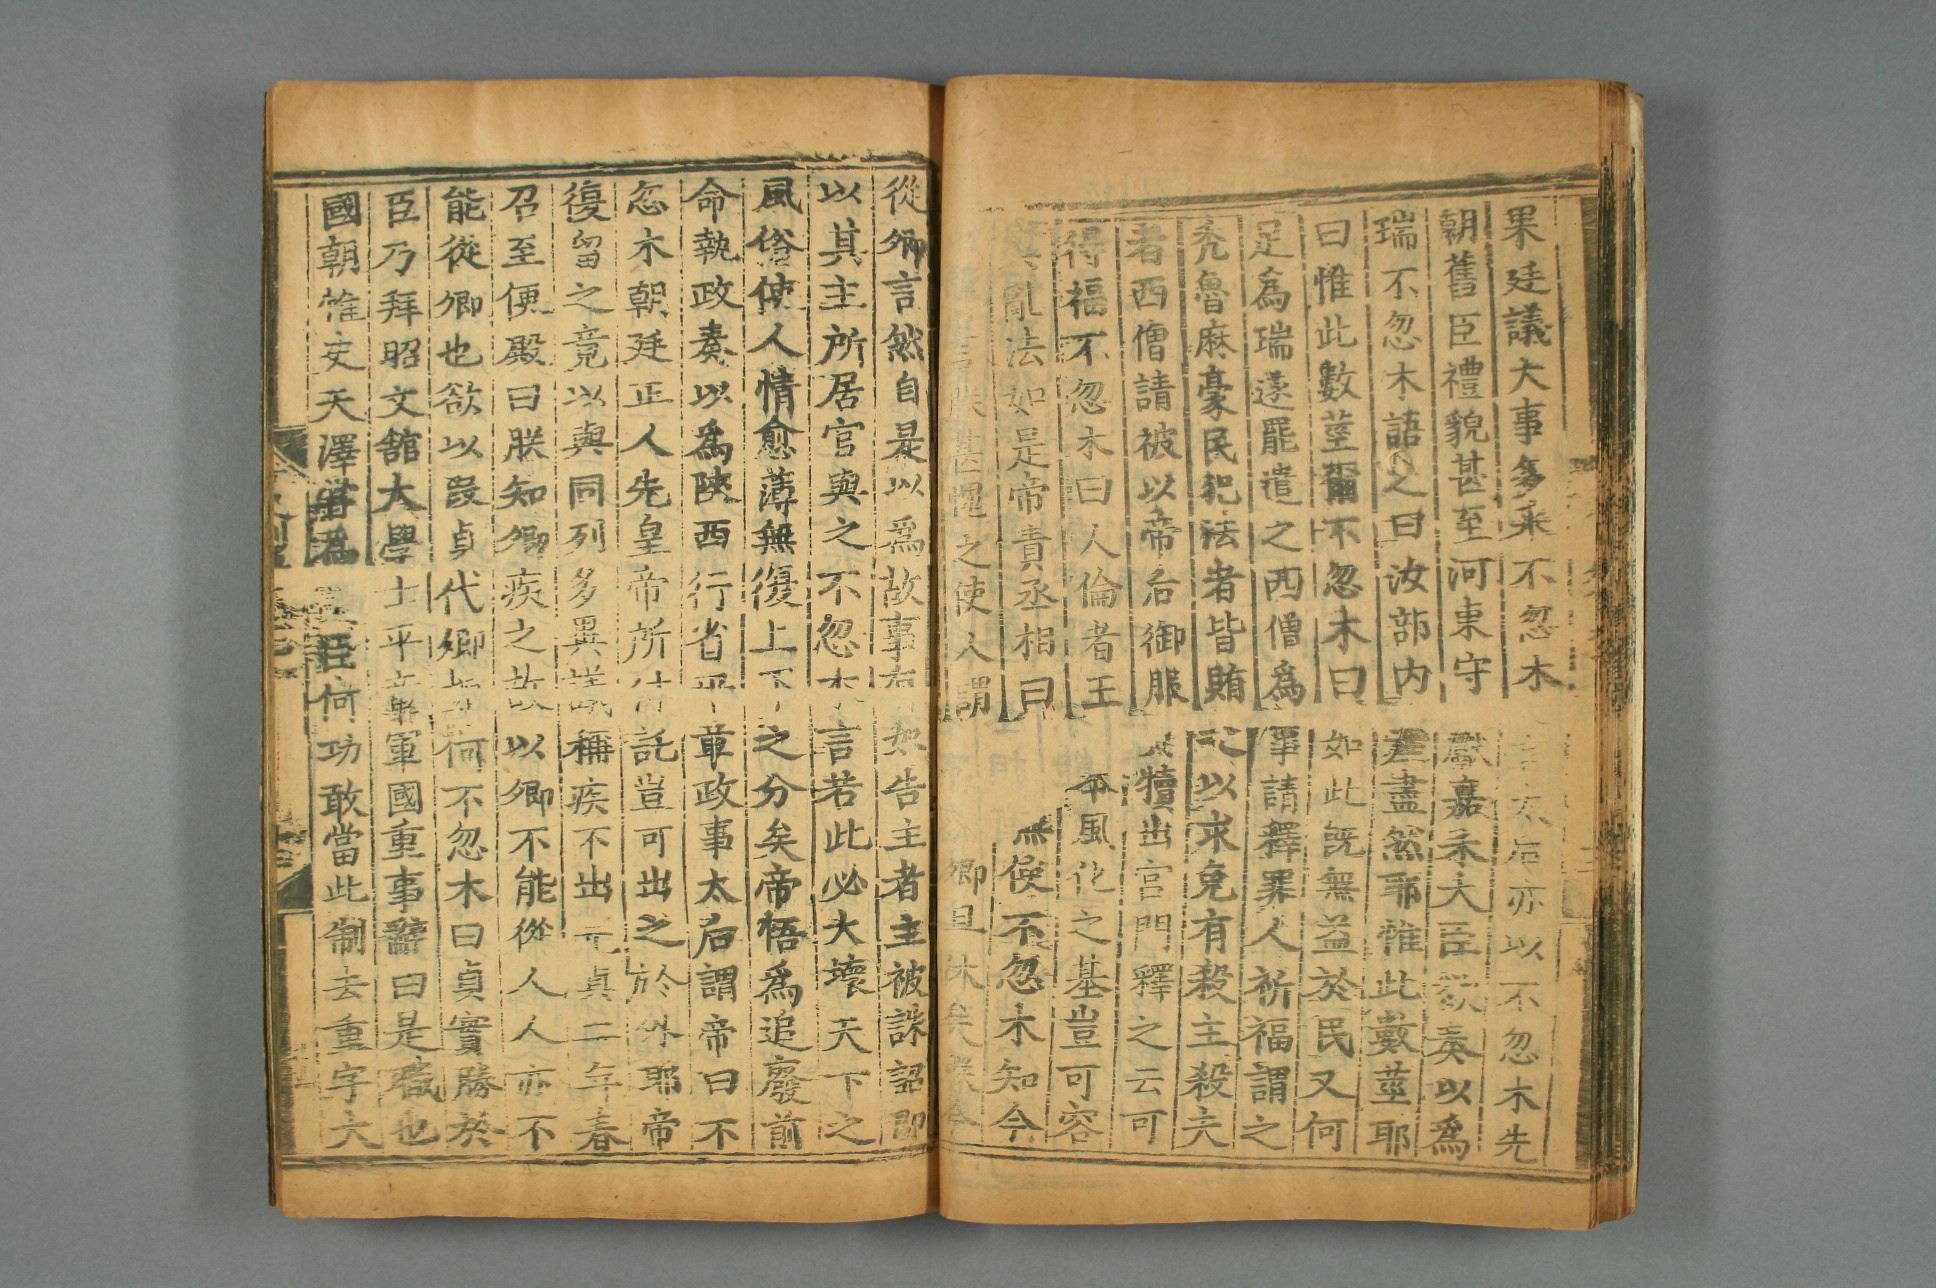 果廷議大事多采不忽木言太后亦以不忽木先
朝舊臣禮貌甚至河東守獻嘉禾大臣欲奏以爲
瑞不忽木語之曰汝部内產盡然耶惟此數莖耶
曰惟此數莖爾不忽木曰如此既無益於民又何
足爲瑞遂罷遣之西僧爲事請釋罪人祈福謂之
禿魯麻豪民犯法者皆賄之以求免有殺主殺夫
者西僧請被以帝后御服犢出宮門釋之云可
得福不忽木曰人倫者王本風化之基豈可容
亂法如是帝責丞相曰無使不忽木知今
言朕甚愧之使人謂卿且休矣朕今
從卿言然自是以爲故事有奴告主者主被誅詔即
以其主所居官與之不忽木言若此必大壞天下之
風俗使人情愈薄無復上下之分矣帝悟爲追廢前
命執政奏以爲陝西行省平章政事太后謂帝曰不
忽木朝廷正人先皇帝所付託豈可出之於外耶帝
復留之竟以與同列多異議稱疾不出元貞二年春
召至便殿曰朕知卿疾之故以卿不能從人人亦不
能從卿也欲以段貞代卿如何不忽木曰貞實勝於
臣乃拜昭文館大學士平章軍國重事辭曰是職也
國朝惟史天澤嘗爲之臣何功敢當此制去重字大